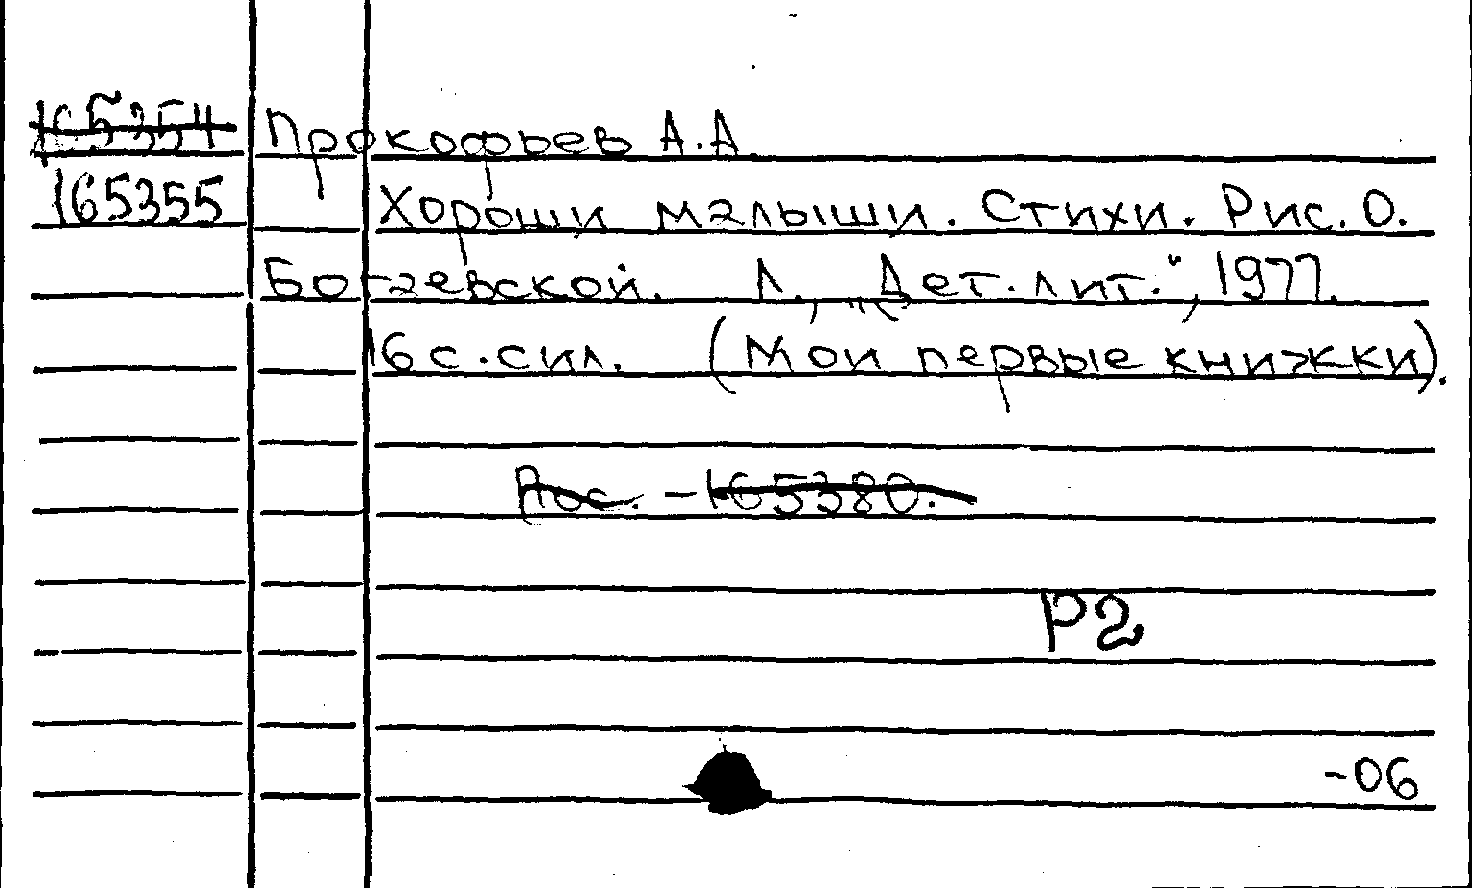 165354 Прокофьев А.А.
165355 Хороши малыши. Стихи. Рис. О.
Богаевской. Л., „Дет. лит.“, 1977.
16 с. с ил. (Мои первые книжки).
Пос. - 165380.
Р2
-06